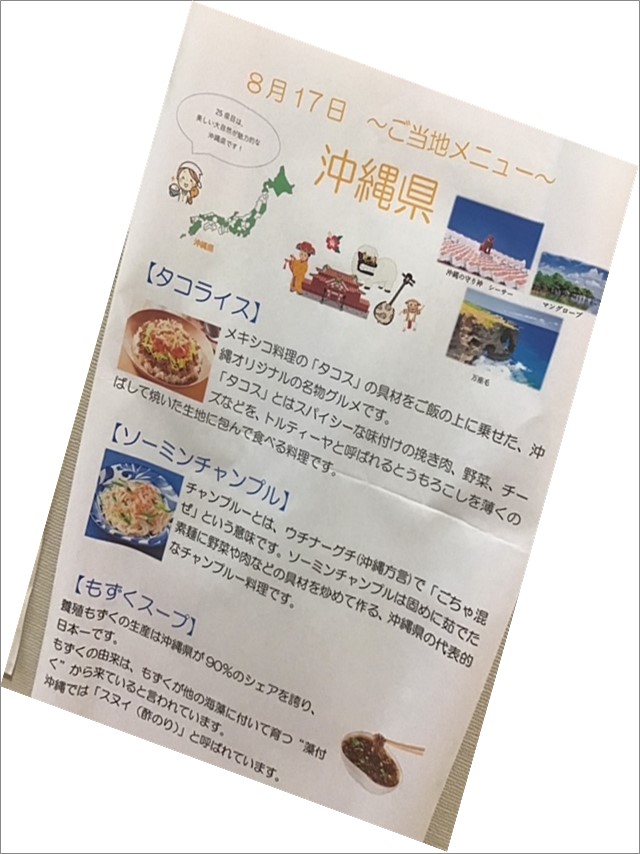 8月17日 ～ご当地メニュー～
25番目は、
美しい大自然が魅力的な
沖縄県です！
沖縄県
沖縄県
沖縄の守り神 シーサー
マングローブ
万座毛
【タコライス】
メキシコ料理の「タコス」の具材をご飯の上に乗せた、沖
縄オリジナルの名物グルメです。
「タコス」とはスパイシーな味付けの挽き肉、野菜、チー
ズなどを、トルティーヤと呼ばれるとうもろこしを薄くの
ばして焼いた生地に包んで食べる料理です。
【ソーミンチャンプル】
チャンプルーとは、ウチナーグチ(沖縄方言)で「ごちゃ混
ぜ」という意味です。ソーミンチャンプルは固めに茹でた
素麺に野菜や肉などの具材を炒めて作る、沖縄県の代表的
なチャンプルー料理です。
【もずくスープ】
養殖もずくの生産は沖縄県が90%のシェアを誇り、
日本一です。
もずくの由来は、もずくが他の海藻に付いて育つ“藻付
く”から来ていると言われています。
沖縄では「スヌイ（酢のり）」と呼ばれています。